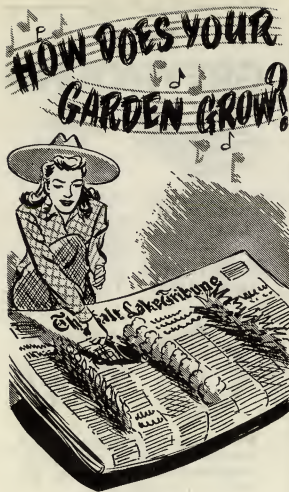 HOW DOES YOUR
GARDEN GROW?
The Salt Lake Tribune